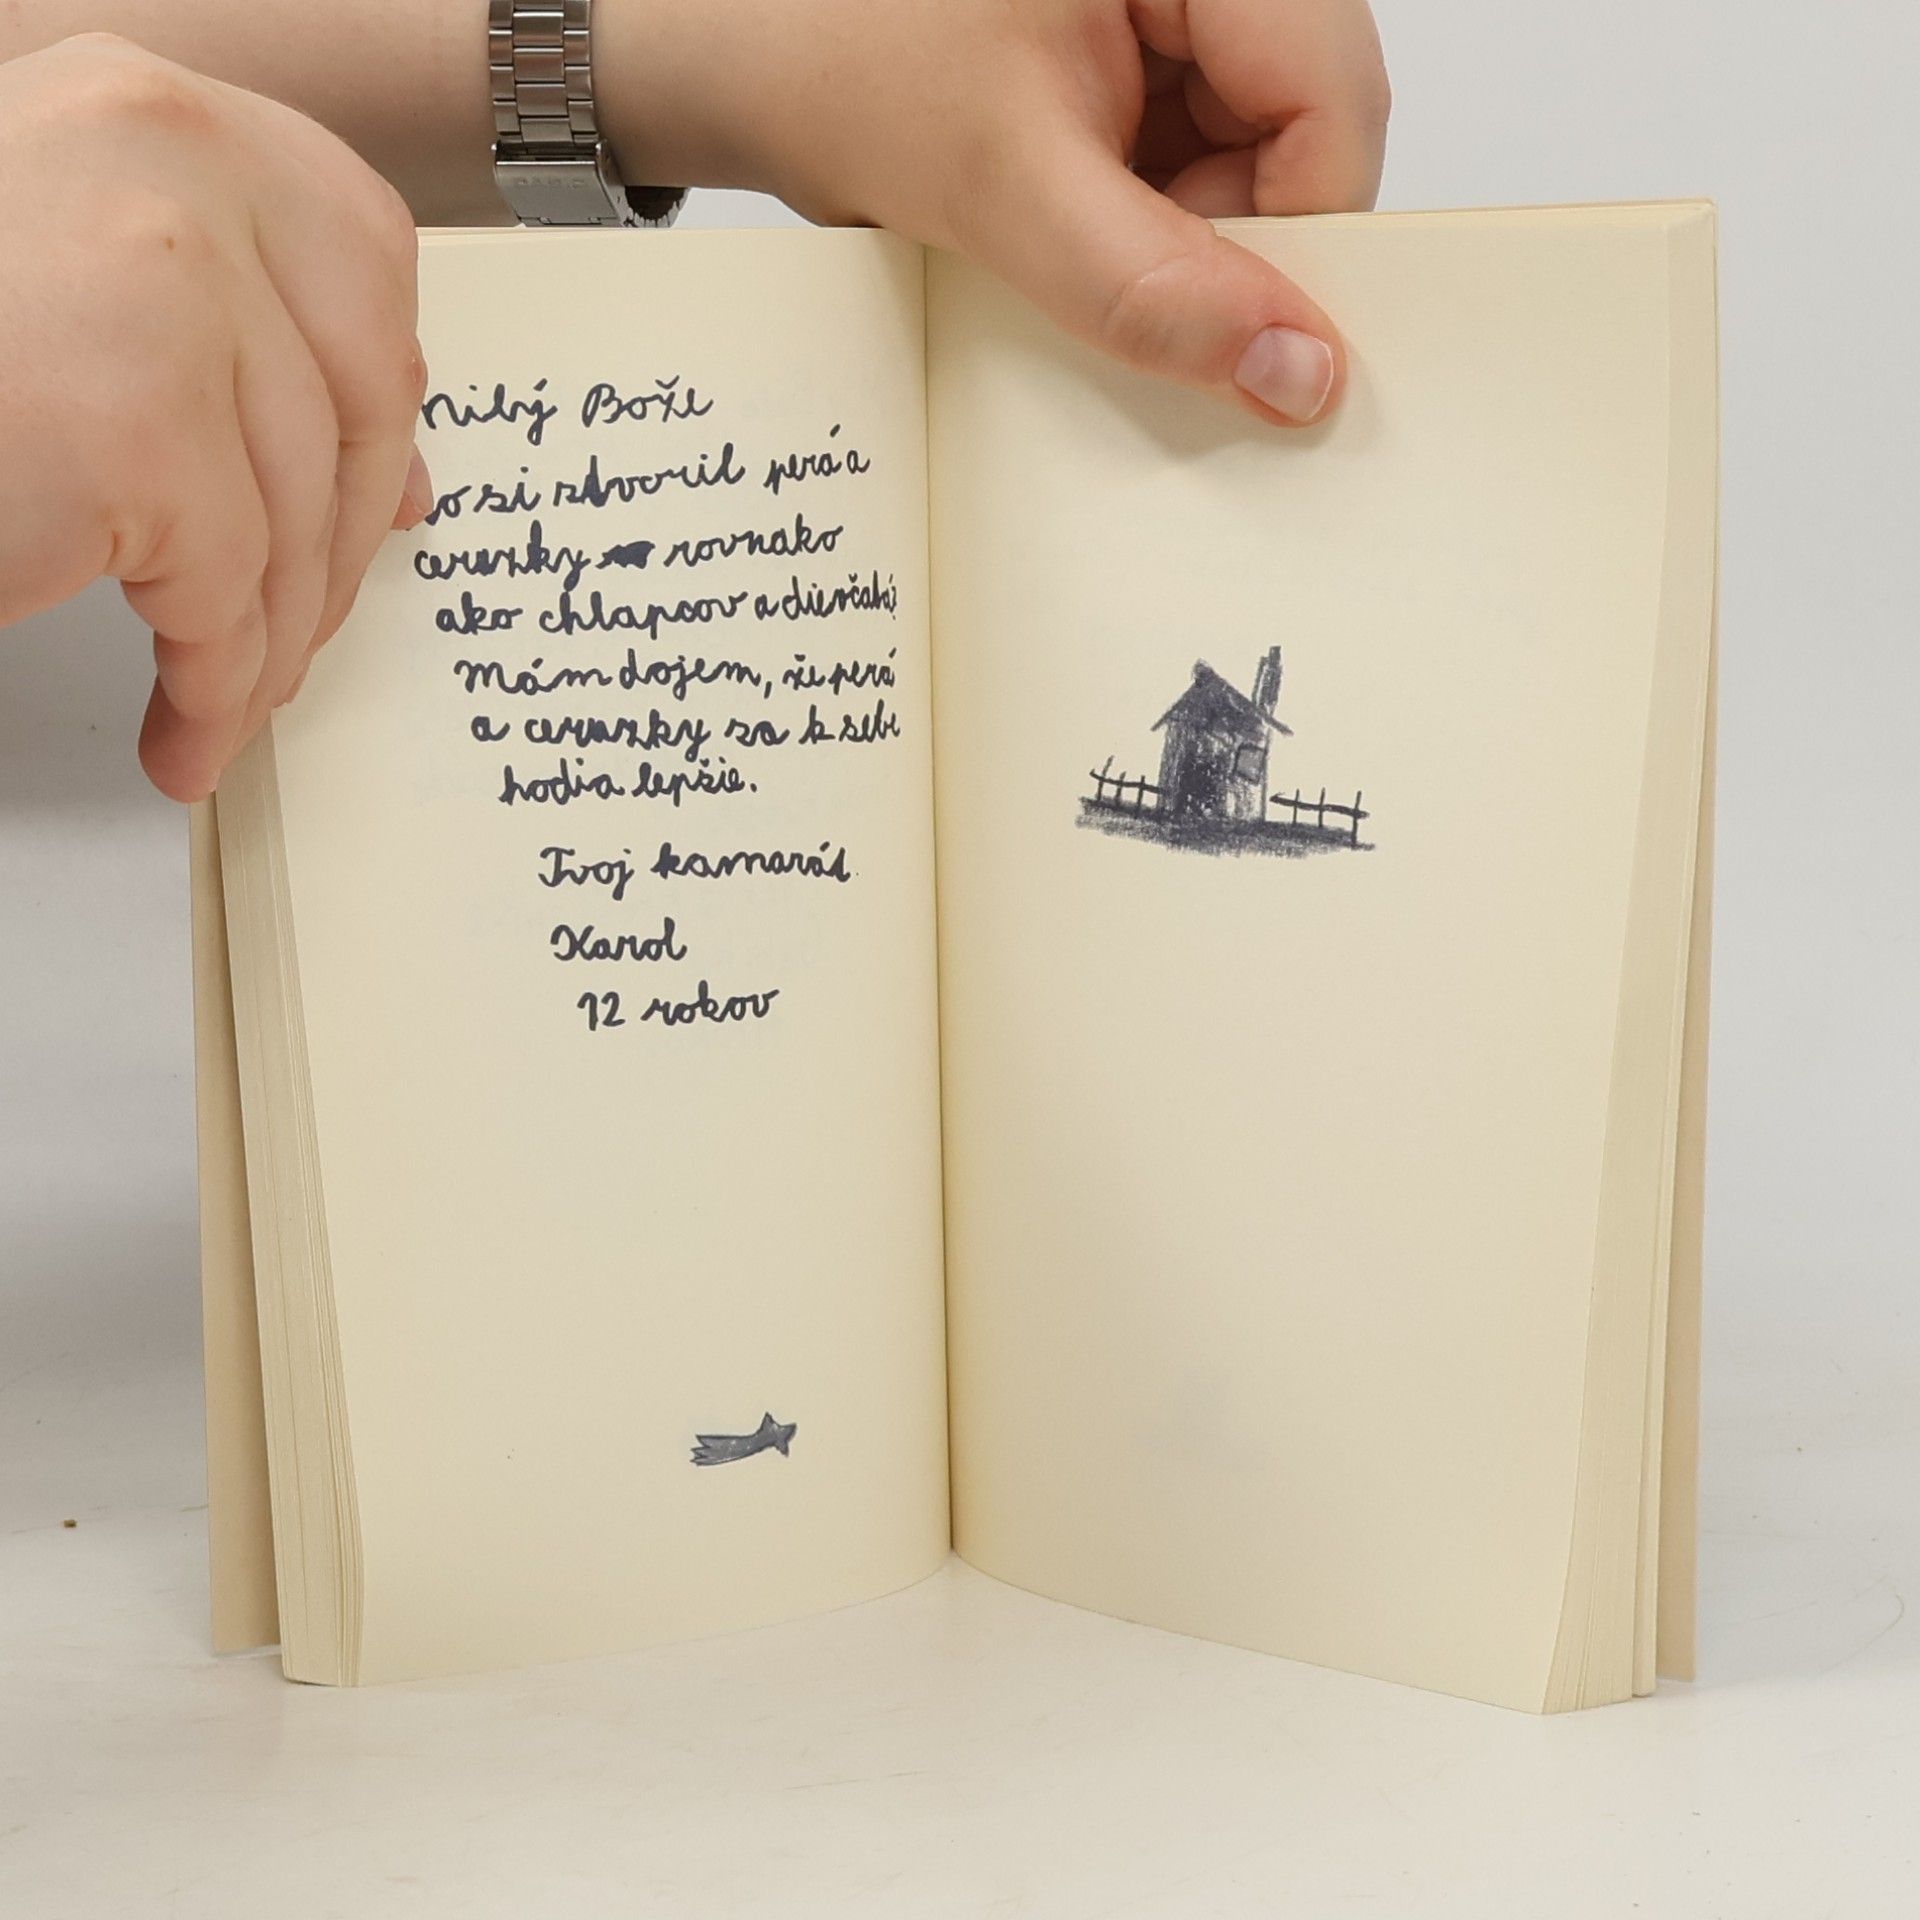 Milý Bože
si stvoril perá a
ceruzky rovnako
ako chlapcov a dievčatá?
Mám dojem, že perá
a ceruzky sa k sebe
hodia lepšie.
Tvoj kamarát
Karol
12 rokov
CASIO